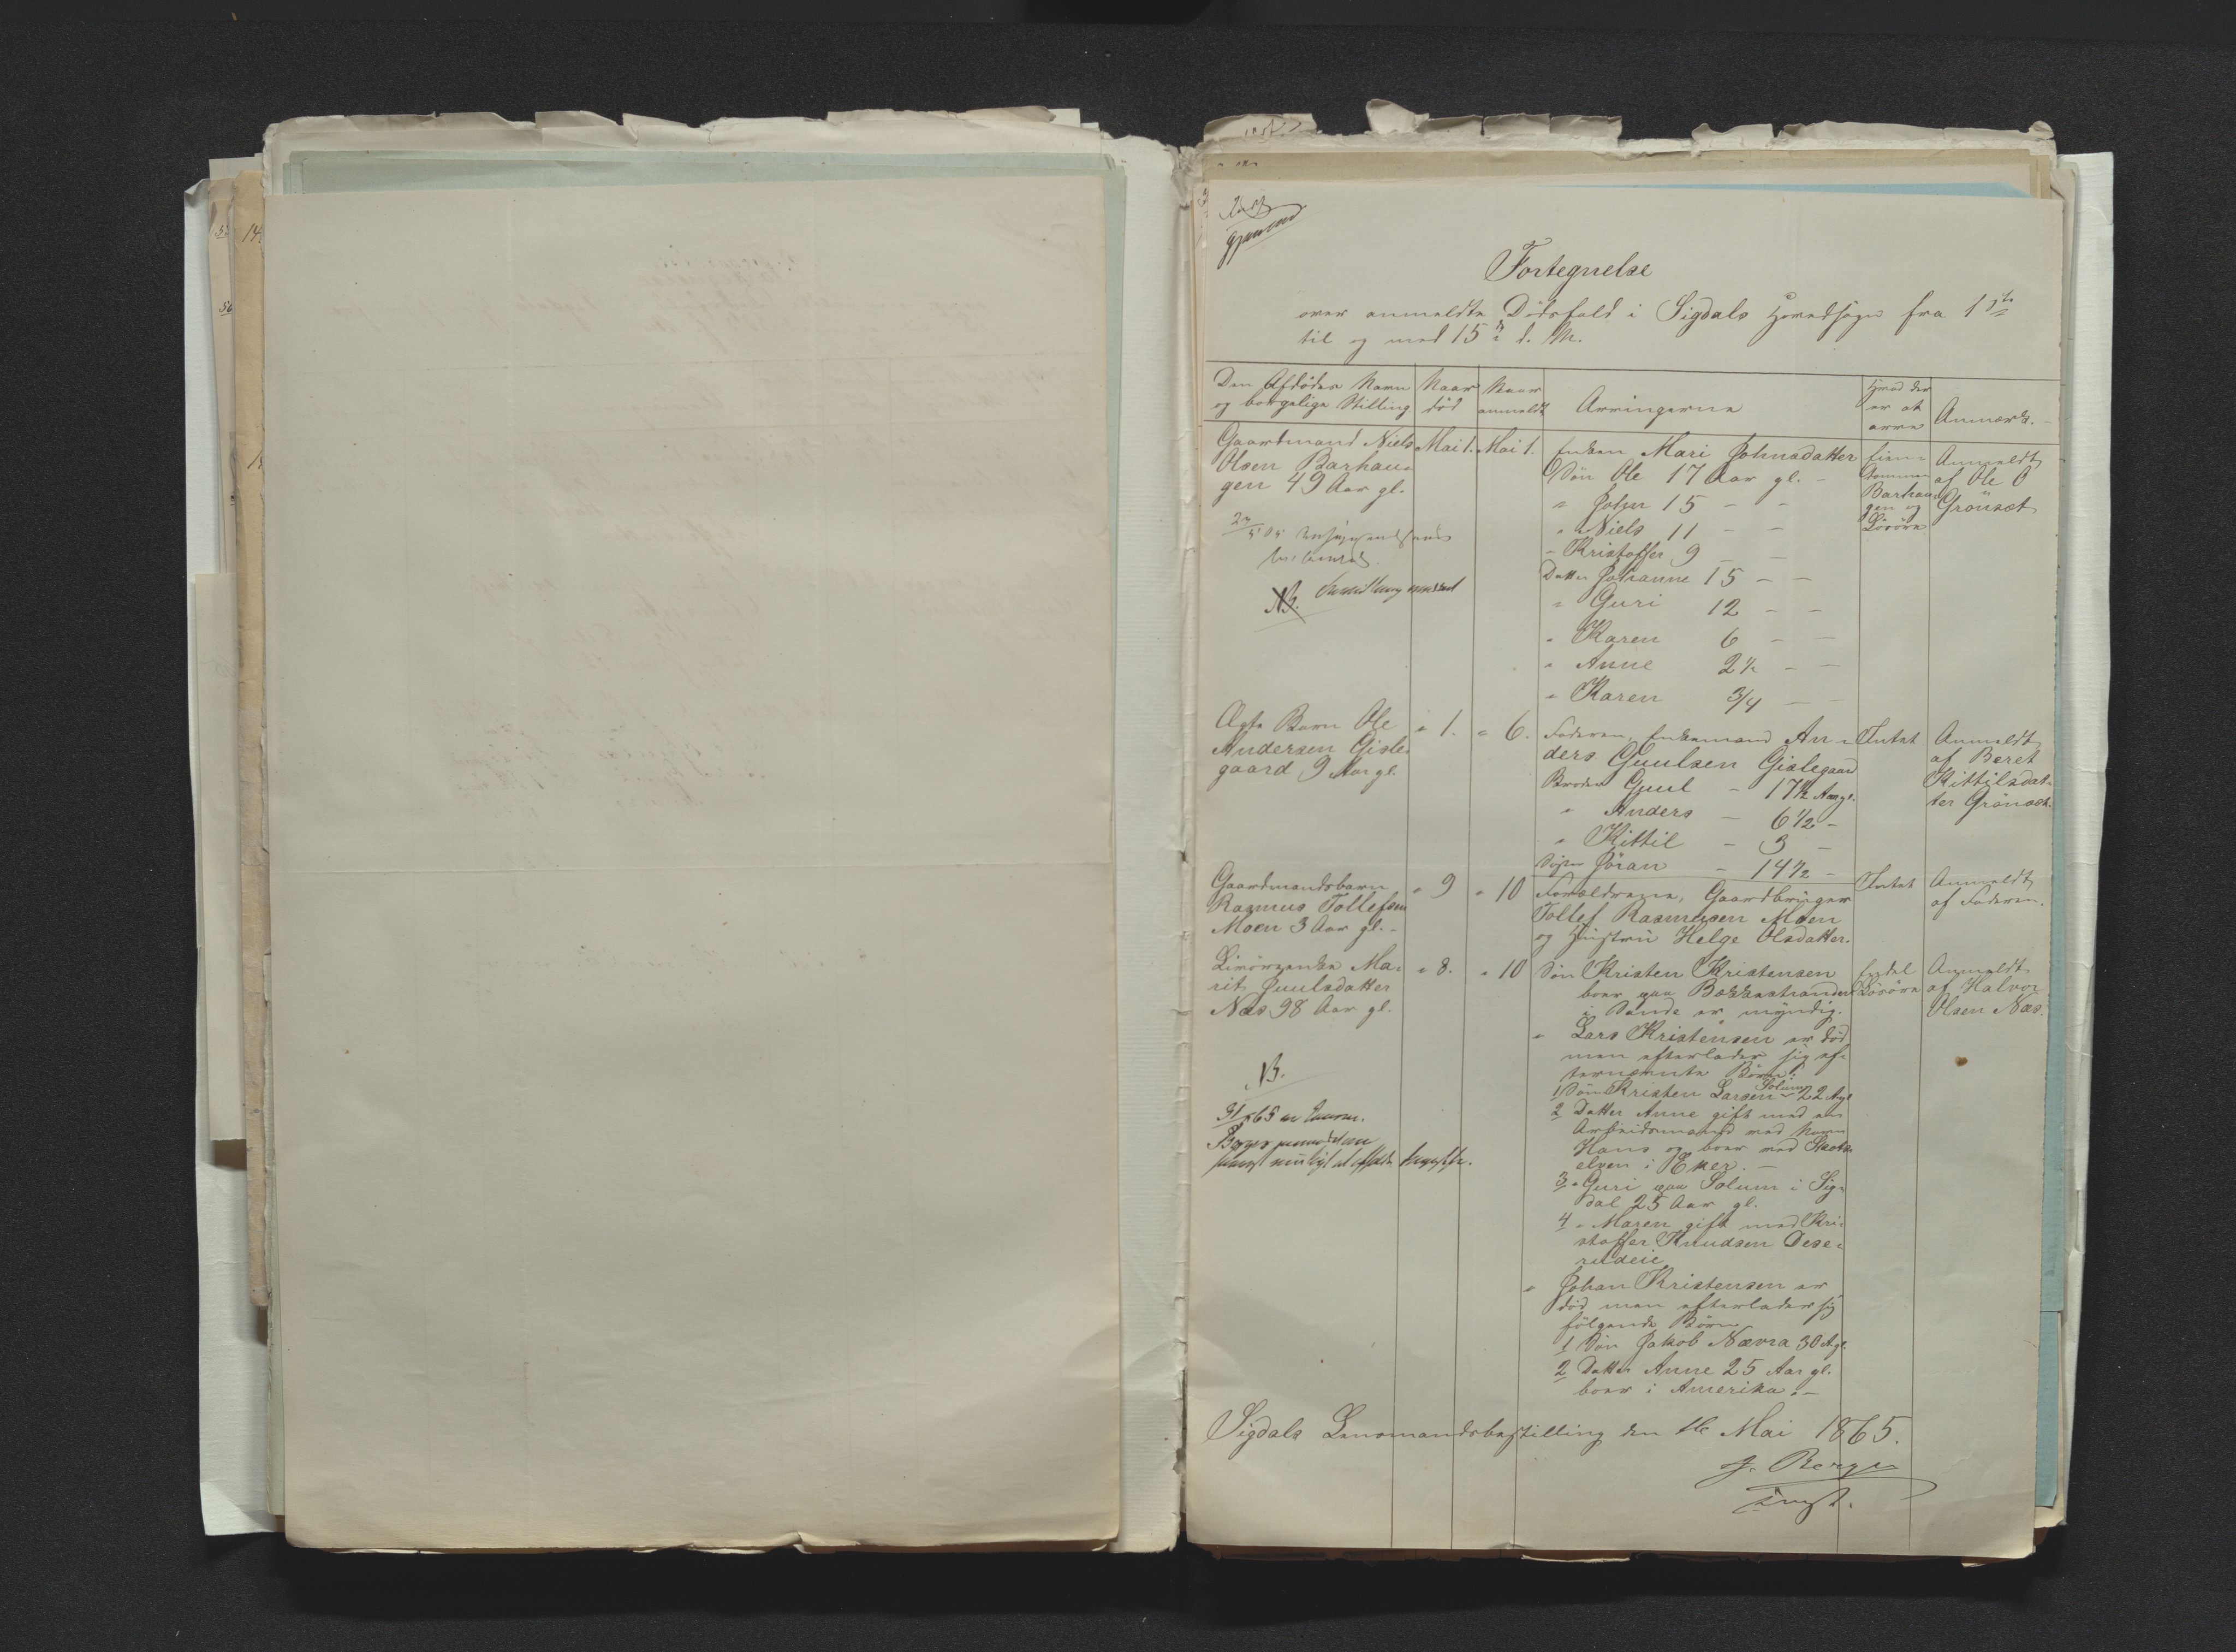 Fortegnelse
over anmeldte Dödsfald i Sigdals Hovedsogn fra 1ste
til og med 15de d. M.
Den Afdödes Navn
og borgelige Stilling
Naar
död
Naar
anmeldt
Arvingerne
Hvad der
er at
arve
Anmærk.
Gaardmand Niels
Olsen Barhau-
gen 49 Aar gl.
Mai 1.
Mai 1.
Enken Mari Johnsdatter
Sön Ole 17 Aar gl. -
" John 15 - -
" Niels 11 - -
" Kristoffer 9 - -
Datter Johanne 15 - -
" Guri 12 - -
" Karen 6 - -
" Anne 2½ - -
" Karen 3/4 - -
Eien-
dommen
Barhau-
gen og
Lösöre
Anmeldt
af Ole O
Grönset
NB.
Ægte Barn Ole
Andersen Gisle-
gaard 9 Aar gl.
" 1.
" 6.
Faderen, Enkemand An-
ders Guulsen Gislegaard
Broder Guul - 17½ Aar gl.
" Anders - 6½ -
" Kittil - 3 -
Söster Jöran - 14½ -
Intet
Anmeldt
af Beret
Kittilsdat-
ter Grönset.
Gaardmandsbarn
Rasmus Tollefsen
Moen 3 Aar gl. -
" 9
" 10
Forældrene, Gaardbruger
Tollef Rasmusen Moen
og Hustru Helge Olsdatter.
Intet
Anmeldt
af Faderen.
Ma-
rit Juulsdatter
Næs 98 Aar gl.
" 8.
" 10
Sön Kristen Kristensen
boer paa
i Sande er myndig.
" Lars Kristensen er död
men efterlader sig ef-
ternævnte Börn:
1 Sön Kristen Larsen Solum 22 A gl
2 Datter Anne gift med en
Arbeidsmand ved Navn
Hans og boer ved Skots-
elven i Eker. -
3 " Guri paa Solum i Sig-
dal 25 Aar gl.
4 " Maren gift med Kri-
stoffer Knudsen Dese-
rudeie
" Johan Kristensen er
död men efterlader sig
fölgende Börn
1 Sön Jakob Nævra 30 A gl.
2 Datter Anne 25 Aar gl.
boer i Amerika. -
Endel
Lösöre
Anmeldt
af Halvor
Olsen Næs.
NB.
Sigdals Lensmandsbestilling den 16 Mai 1865.
J. Berge